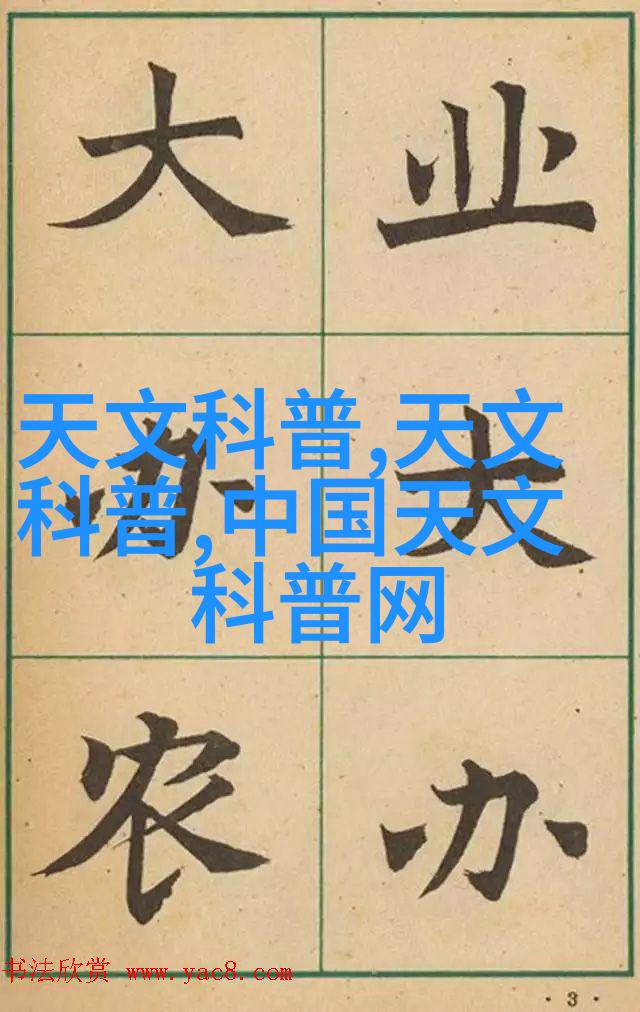 大办农
业大办
天文科普,天文
科普,中国天文
科普网
书法欣赏 www.yac8.com
·3·